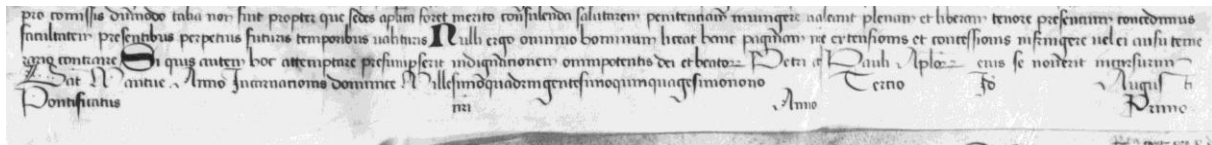 pro comissis dūmodo talia non sint propter que sedes aplica foret merito consulenda salutarem penitenciam iniungere valeant plenam et liberam tenore presentium concedimus
facultatem presentibus perpetuis futuris temporibus valituris Nulli ergo omnino hominum liceat hanc paginam nre extensionis et concessionis infringere vel ei ausu teme
rario contraire Si quis autem hoc attemptare presumpserit indignationem omnipotentis dei et beatoꝝ Petri et Pauli Aploꝝ eius se noverit incursurum
Dat Mantue Anno Incarnationis dominice Millesimoquadringentesimoquinquagesimonono Tertio Id Augusti
Pontificatus nri Anno Primo